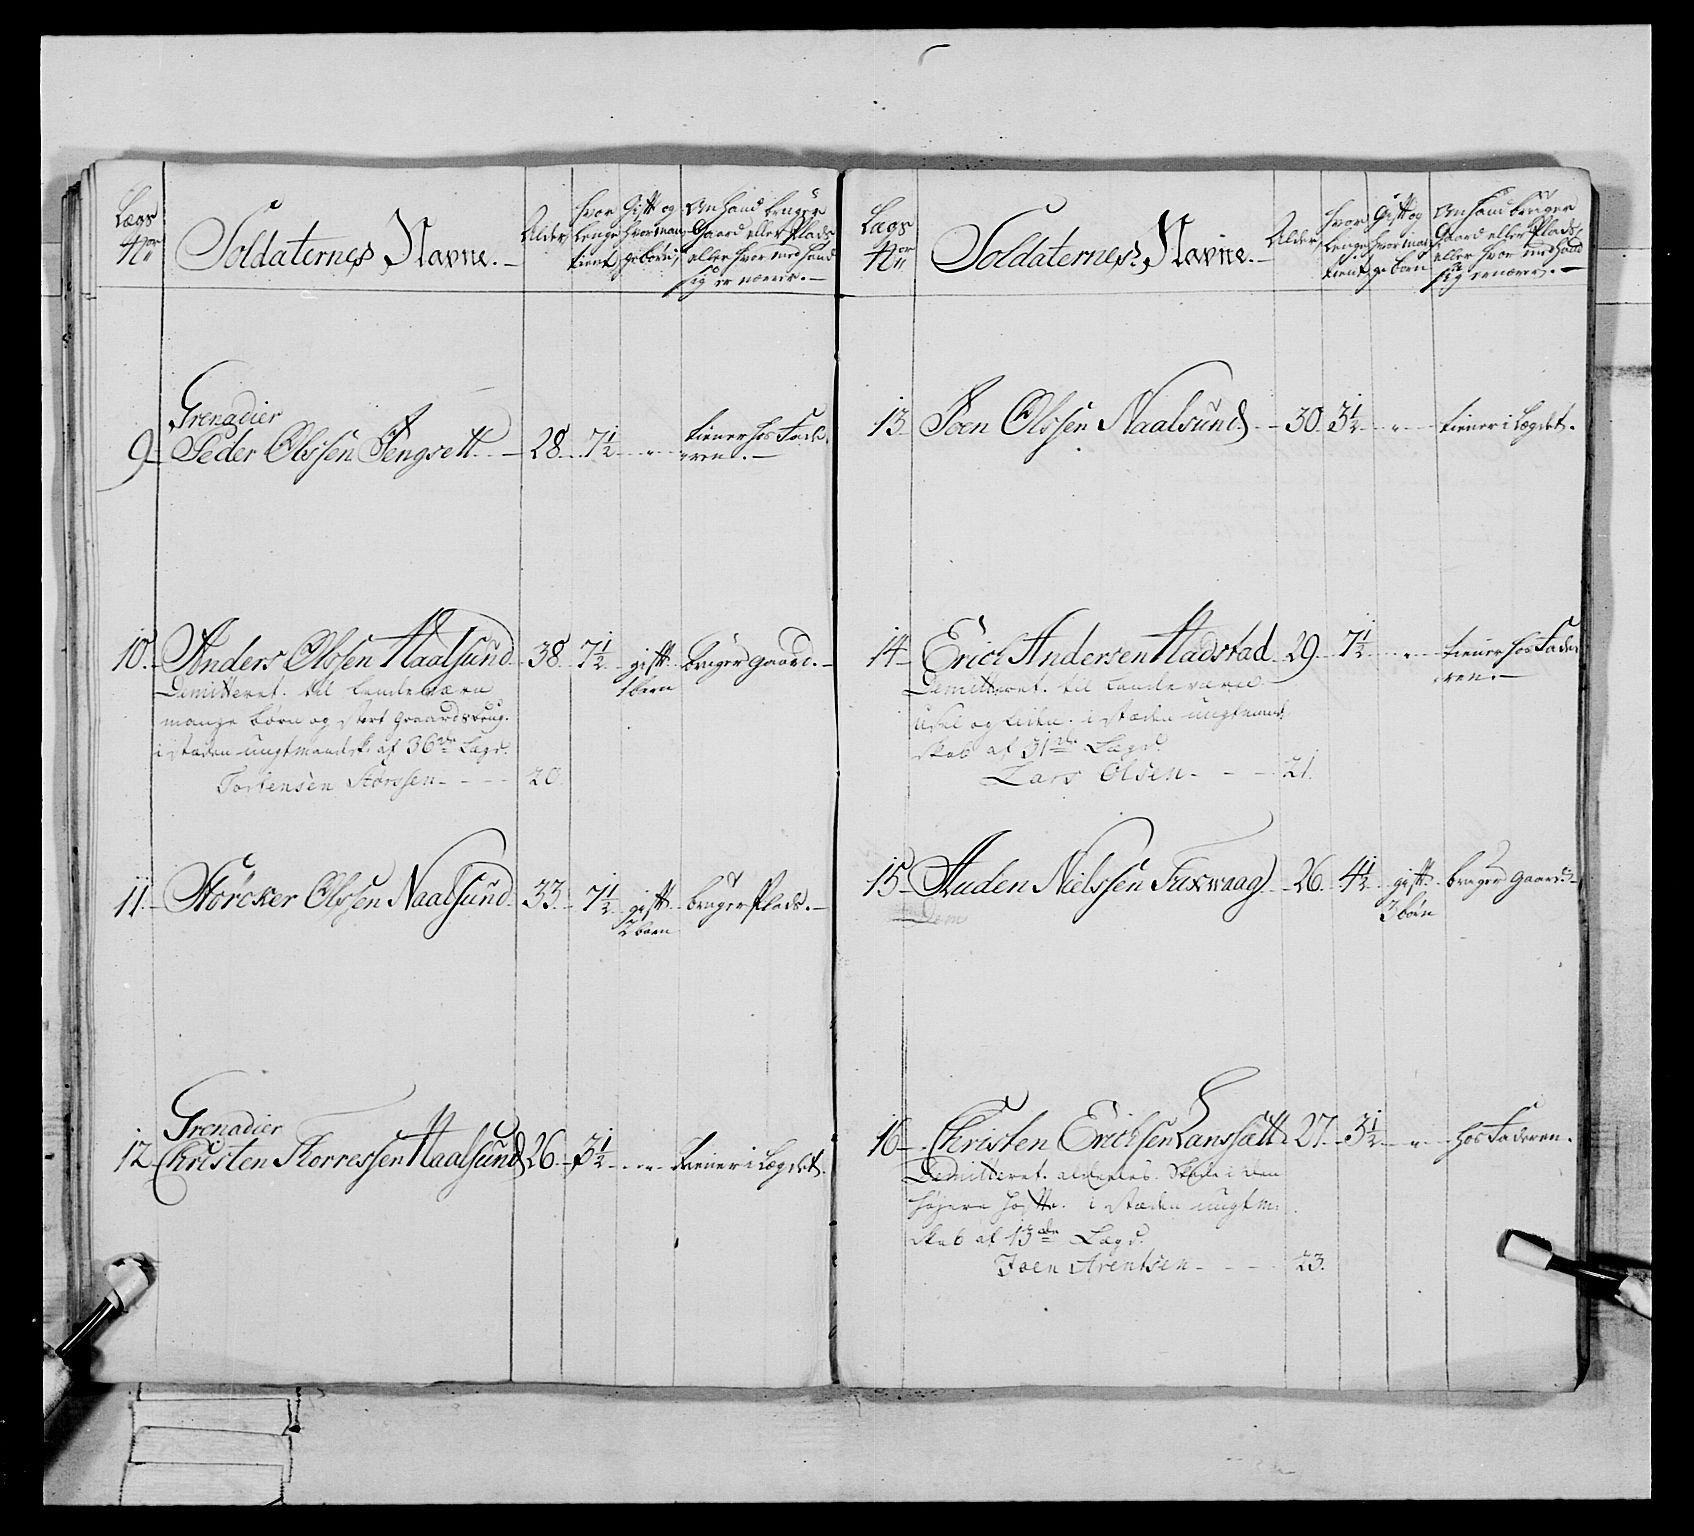 Lægs
Nr
Soldaternes Navne.
Alder
hvor
lenge
tient
Gift og
hvor man
ge børn
Om hand bruger
Gaard eller Plads
eller hvor med hand
sig ernærer.
Grenadier
9 Peder Olssen Tengsett 28 7½ " tiener hos Fade
ren.
10. Anders Olssen Naalsund 38 7½ gift bruger gaard.
1 born
Demitteret til landeværn
mange børn og stort Gaardsbrug.
i staden ungtmandsk. af 36de Lægd.
Torstensen Størssen 20.
11. Størcker Olssen Naalsund 33 7½ gift bruger Plads.
2 born
Grenadier
12 Christen Storressen Naalsund 26 3½ " tiener i Lægdet.
Lægs
Nr
Soldaternes Navne.
Alder
hvor
lenge
tient
Gift og
hvor man
ge børn
Om hand bruger
Gaard eller Plads
eller hvor med hand
sig ernærer.
13 Joen Olssen Naalsund 30 3½ " tiener i Lægdet.
14 Erich Andersen Nadstad 29 7½ " tiener hos Fade
ren.
Demitteret til landeværn
usel og liden. i stæden ungtmand
skab af 31de Lægd.
Lars Olsen 21.
15 Auden Nielssen Fuxwaag 26 4½ gift bruger Gaard.
3 børn
Dem
16 Christen Erichsen Lanssætt 27 3½ " hos Faderen.
Demitteret. Skade i den
højere hofte. i stæden ungtm
skab af 13de Lægd.
Joen Arentsen 23.